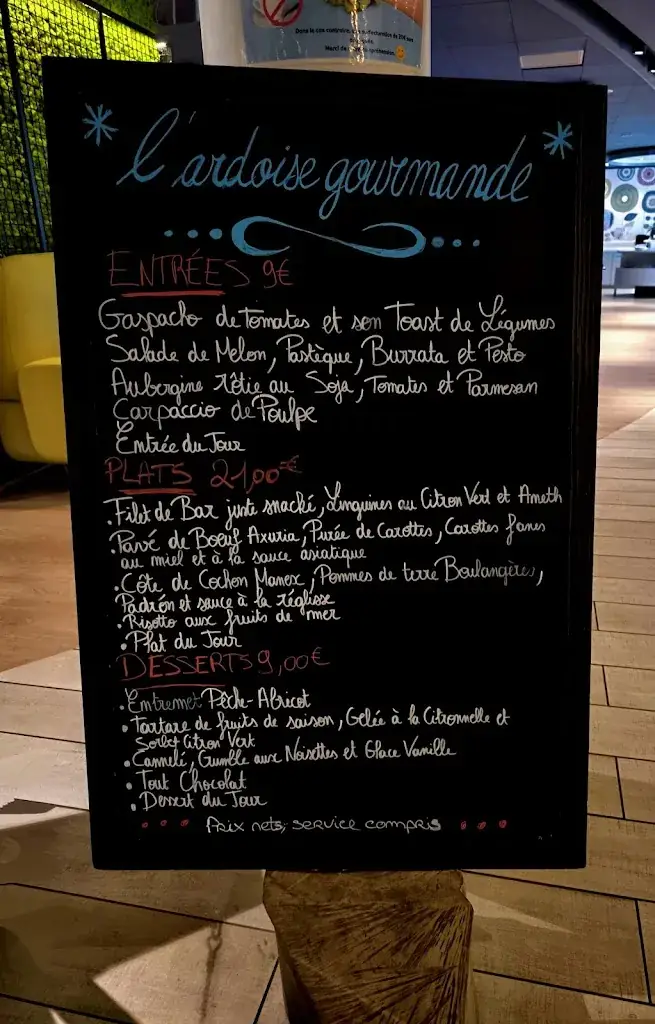 Merci de compréhension
l'ardoise gourmande
ENTRÉES 9€
Gaspacho de Tomates et son Toast de Légumes
Salade de Melon, Pastèque, Burrata et Pesto
Aubergine rôtie au Soja, Tomates et Parmesan
Carpaccio de Poulpe
Entrée du Jour
PLATS 21,00€
.Filet de Bar juste snacké, Linguines au Citron Vert et Aneth
.Pavé de Boeuf Axuria, Purée de Carottes, Carottes fanes
au miel et à la sauce asiatique
.Côte de Cochon Manex, Pommes de terre Boulangères,
Padrón et sauce à la réglisse
.Risotto aux fruits de mer
•Plat du Jour
DESSERTS 9,00€
.Entremet Pêche-Abricot
•Tartare de fruits de saison, Gelée à la Citronnelle et
Sorbet Citron Vert
•Cannelé, Crumble aux Noisettes et Glace Vanille
•Tout Chocolat
•Dessert du Jour
••• Prix nets, service compris •••